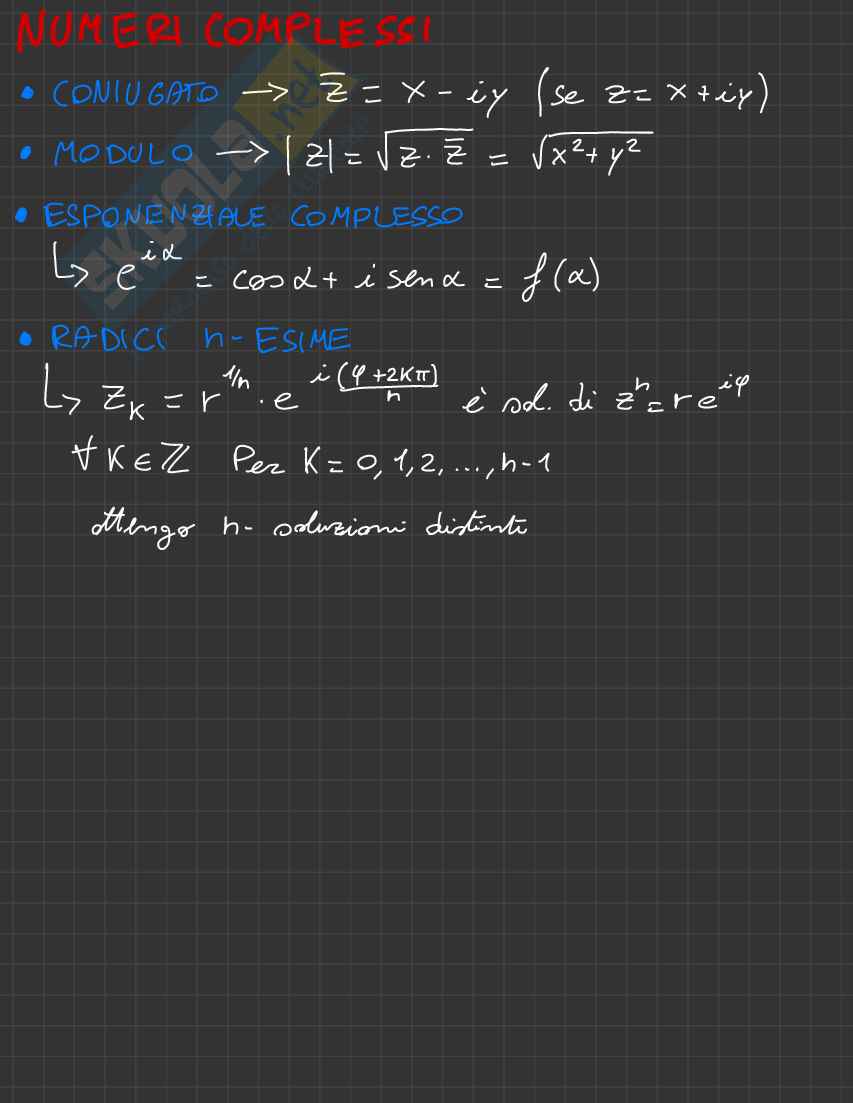 NUMERI COMPLESSI
• CONIUGATO → z̅ = x - iy (se z = x + iy)
• MODULO → |z| = √(z · z̅) = √(x² + y²)
• ESPONENZIALE COMPLESSO
↳ e^(iα) = cos α + i sen α = f(α)
• RADICI n-ESIME
↳ z_K = r^(1/n) · e^(i (φ + 2Kπ)/n) è sol. di z^n = r e^(iφ)
∀ K ∈ ℤ Per K = 0, 1, 2, ..., n-1
ottengo n- soluzioni distinte
SKUOLA.net